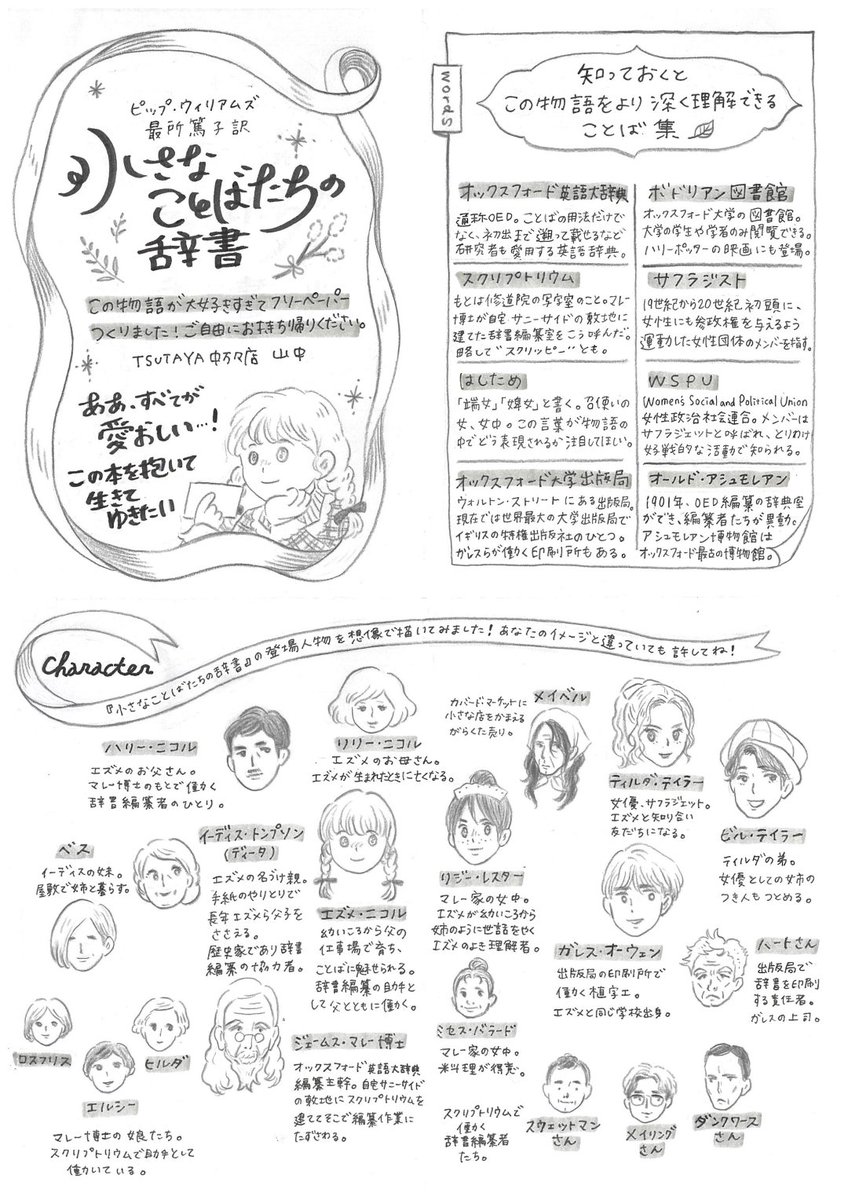 ピップ・ウィリアムズ
最所篤子訳
小さな
ことばたちの
辞書
この物語が大好きすぎてフリーペーパー
つくりました！ご自由にお持ち帰りください。
TSUTAYA中万々店 山中
ああ、すべてが
愛おしい…！
この本を抱いて
生きて
ゆきたい
words
知っておくと
この物語をより深く理解できる
ことば集
オックスフォード英語大辞典
通称OED。ことばの用法だけで
なく、初出まで遡って載せるなど
研究者も愛用する英語辞典。
スクリプトリウム
もとは修道院の写字室のこと。マレー
博士が自宅サニーサイドの敷地に
建てた辞書編纂室をこう呼んだ。
略して"スクリッピー"とも。
はしため
「端女」「婢女」と書く。召使いの
女、女中。この言葉が物語の
中でどう表現されるか注目してほしい。
オックスフォード大学出版局
ウォルトン・ストリートにある出版局。
現在では世界最大の大学出版局で
イギリスの特権出版社のひとつ。
ガレスらが働く印刷所もある。
ボドリアン図書館
オックスフォード大学の図書館。
大学の学生や学者のみ閲覧できる。
ハリーポッターの映画にも登場。
サフラジスト
19世紀から20世紀初頭に、
女性にも参政権を与えるよう
運動した女性団体のメンバーを指す。
WSPU
Women's Social and Political Union
女性政治社会連合。メンバーは
サフラジェットと呼ばれ、とりわけ
好戦的な活動で知られる。
オールド・アシュモレアン
1901年、OED編纂の辞典室
ができ、編纂者たちが異動。
アシュモレアン博物館は
オックスフォード最古の博物館。
Character
『小さなことばたちの辞書』の登場人物を想像で描いてみました！あなたのイメージと違っていても許してね！
ハリー・ニコル
エズメのお父さん。
マレー博士のもとで働く
辞書編纂者のひとり。
リリー・ニコル
エズメのお母さん。
エズメが生まれたときに亡くなる。
カバードマーケットに
小さな店をかまえる
がらくた売り。
メイベル
ティルダ・テイラー
女優、サフラジェット。
エズメと知り合い
友だちになる。
ビル・テイラー
ティルダの弟。
女優としての女姉の
つき人もつとめる。
ベス
イーディスの妹。
屋敷で姉と暮らす。
イーディス・トンプソン
(ディータ)
エズメの名づけ親。
手紙のやりとりで
長年エズメら父子を
ささえる。
歴史家であり辞書
編纂の協力者。
エズメ・ニコル
幼いころから父の
仕事場で育ち、
ことばに魅せられる。
辞書編纂の助手と
して父とともに働く。
リジー・レスター
マレー家の女中。
エズメが幼いころから
姉のように世話をやく
エズメのよき理解者。
ガレス・オーウェン
出版局の印刷所で
働く植字工。
エズメと同じ学校出身。
ハートさん
出版局で
辞書を印刷
する責任者。
ガレスの上司。
ロスフリス
エルシー
ヒルダ
マレー博士の娘たち。
スクリプトリウムで助手として
働いている。
ジェームス・マレー博士
オックスフォード英語大辞典
編纂主幹。自宅サニーサイド
の敷地にスクリプトリウムを
建ててそこで編纂作業に
たずさわる。
ミセス・バラード
マレー家の女中。
料理が得意。
スクリプトリウムで
働く
辞書編纂者
たち。
スウェットマン
さん
メイリング
さん
ダンクワース
さん